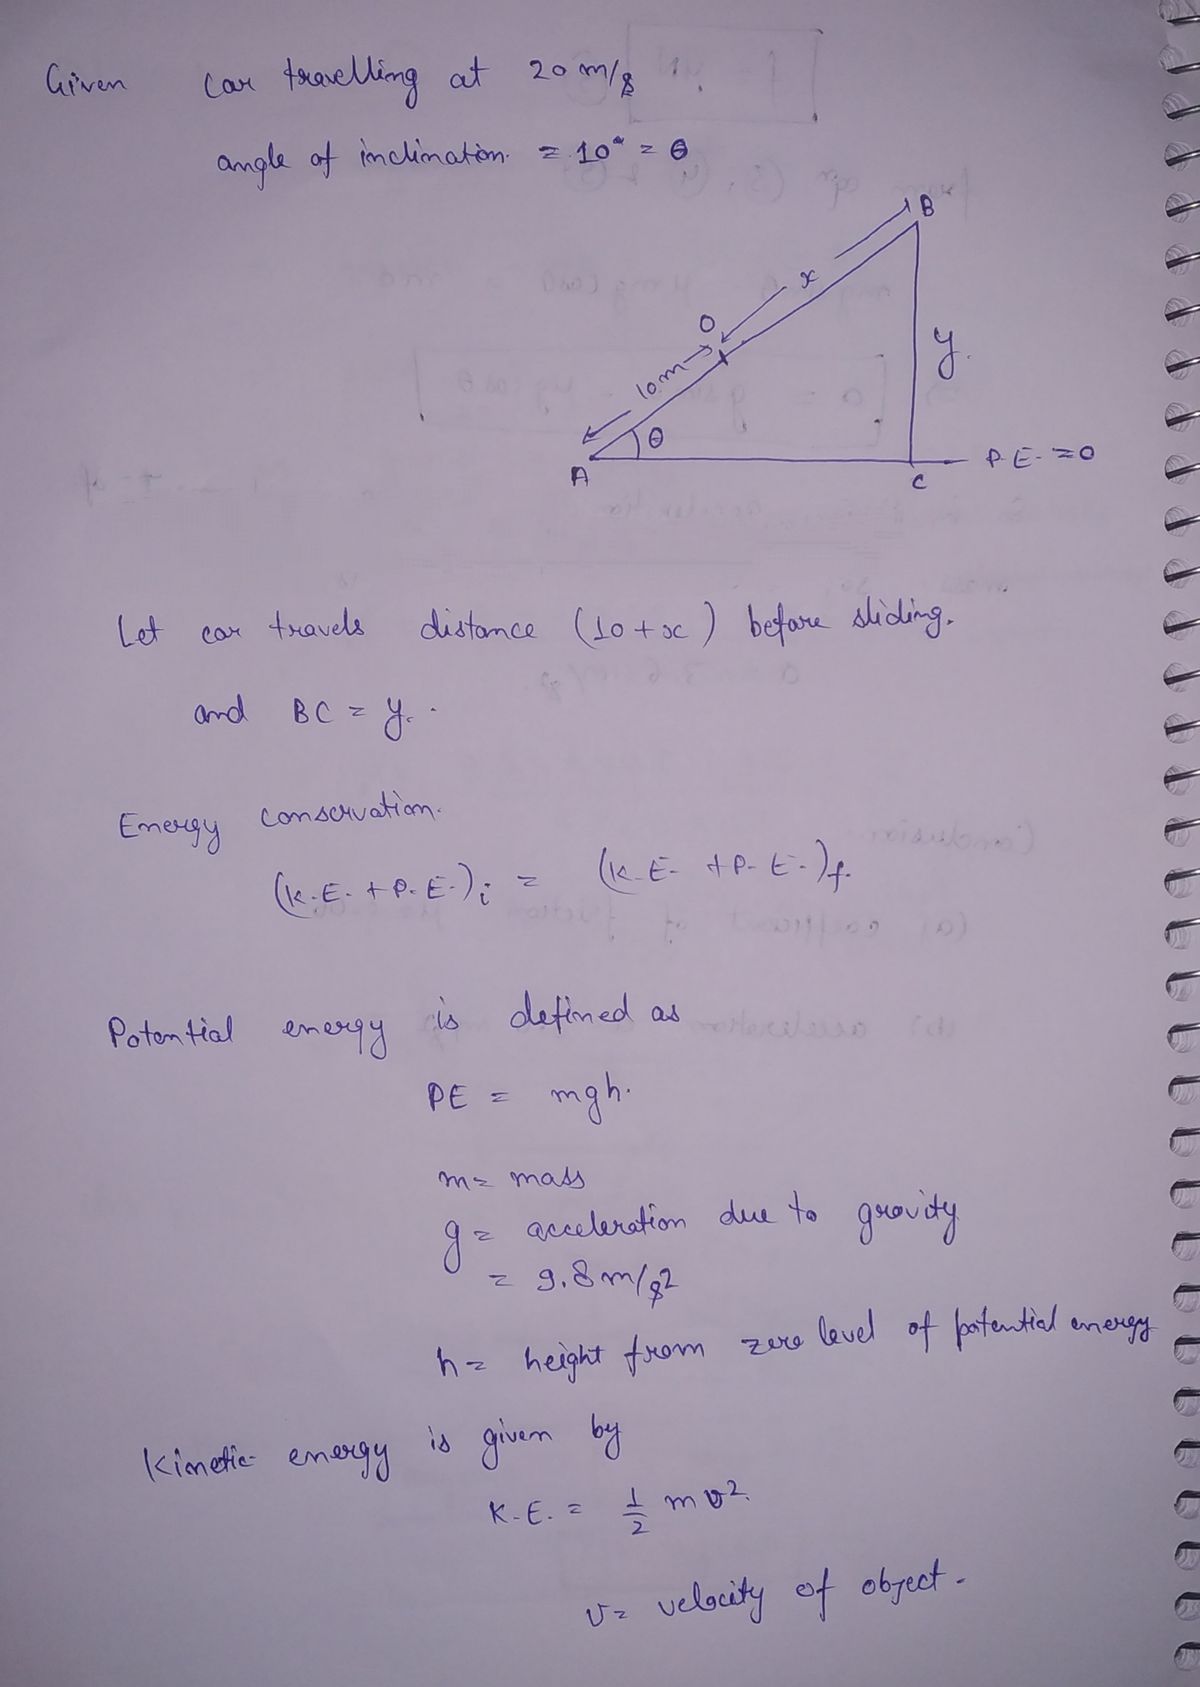 Given car travelling at 20 m/s
angle of inclination. = 10° = θ
B
x
O
y.
10m
θ
P.E. = 0
A
C
Let car travels distance (10+x) before sliding.
and BC = y.
Energy conservation.
(K.E. + P.E.)i = (K.E. + P.E.)f.
Potential energy is defined as
PE = mgh.
m = mass
g = acceleration due to gravity
= 9.8 m/s2
h = height from zero level of potential energy
Kinetic energy is given by
K.E. = 1/2 m v2.
v = velocity of object.